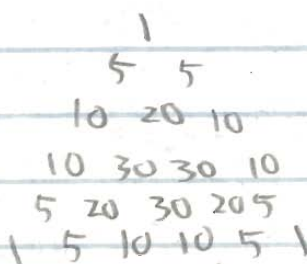 1
5 5
10 20 10
10 30 30 10
5 20 30 20 5
1 5 10 10 5 1